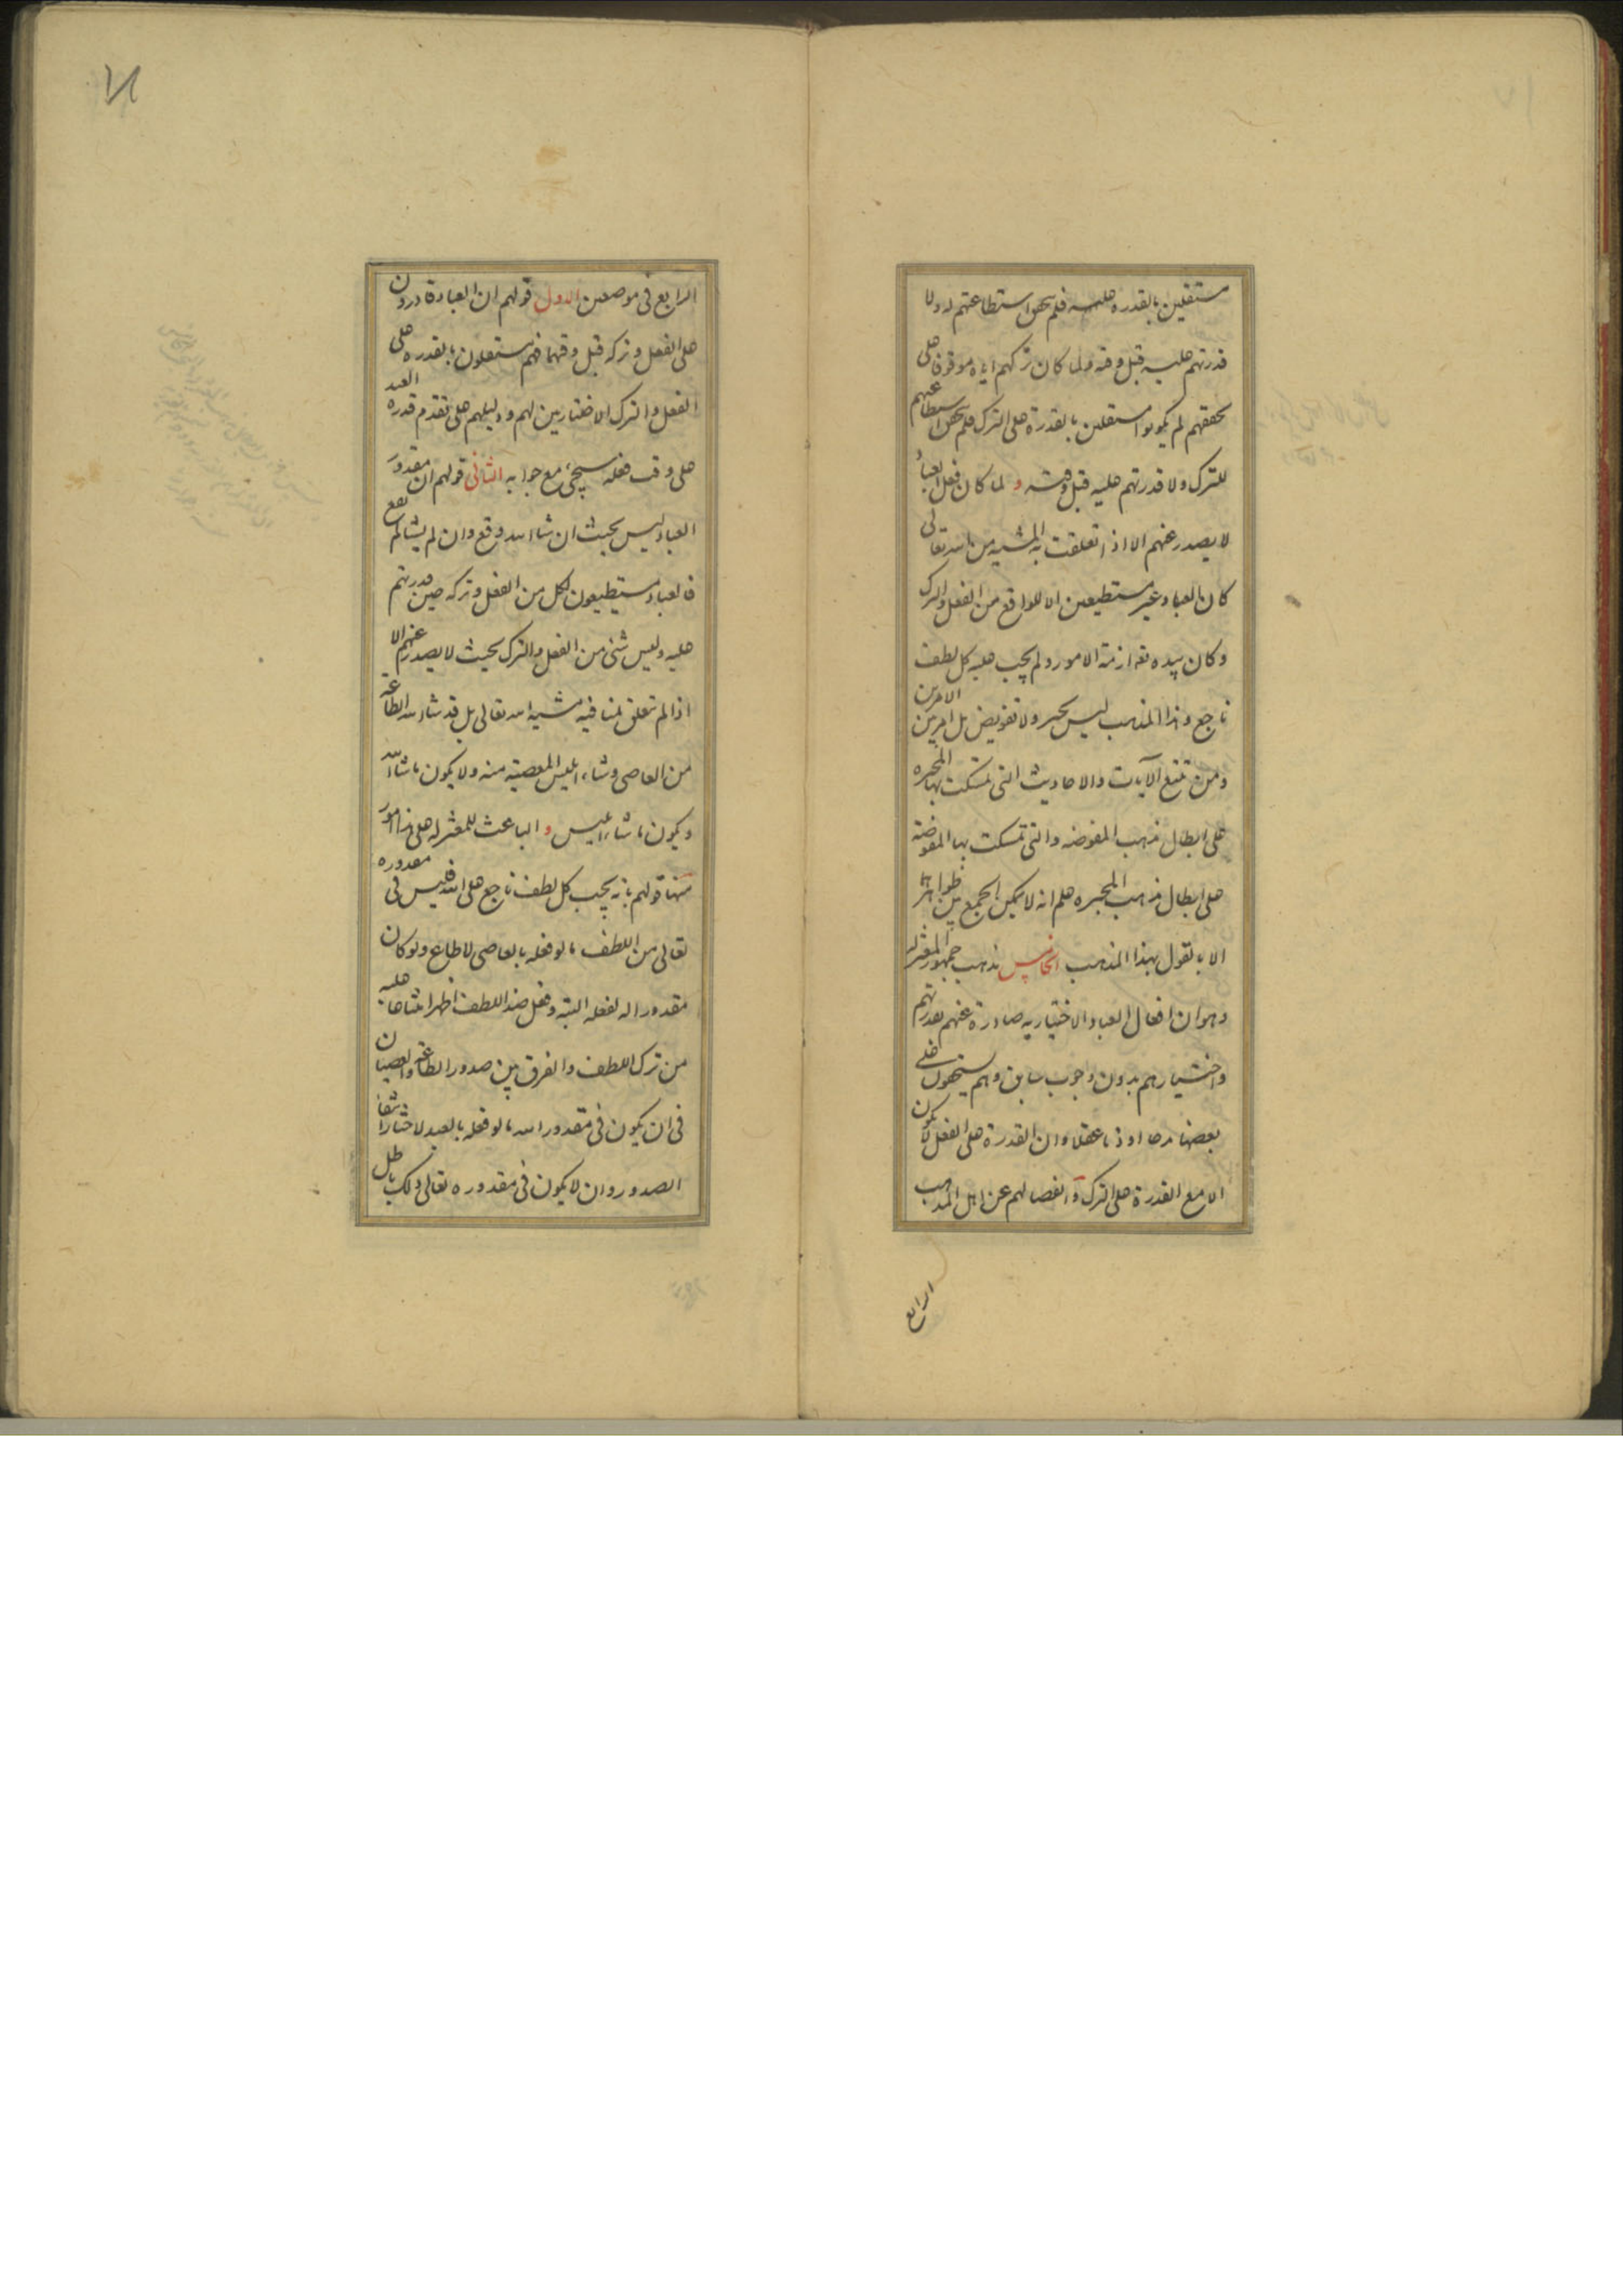 مستقلين بالقدرة عليه فلم يكن استطاعتهم له ولا
قدرتهم عليه قبل وقته ولما كان تركهم اياه موقوفا على
تحققهم لم يكونوا مستقلين بالقدرة على الترك فلم يكن استطاعتهم
للترك ولا قدرتهم عليه قبل وقته و لما كان فعل العباد
لا يصدر عنهم الا اذا تعلقت به المشيه من الله تعالى
كان العباد غير مستطيعين الا للواقع من الفعل والترك
وكان بيده تعه ازمة الامور ولم يجب عليه كل لطف
ناجع وهذا المذهب ليس بجبر ولا تفويض بل امر بين الامرين
ومن تتبع الآيات والاحاديث التى تمسكت بها المجبره
على ابطال مذهب المفوضه والتى تمسكت بها المفوضة
على ابطال مذهب المجبره علم انه لا يمكن الجمع بين ظواهرها
الا بالقول بهذا المذهب الخامس مذهب جمهور المعتزله
وهو ان افعال العباد الاختياريه صادرة عنهم بقدرتهم
واختيارهم بدون وجوب سابق وهم يستحقون على
بعضها مدحا او ذما عقلا وان القدرة على الفعل لا يكون
الا مع القدرة على الترك و انفصالهم عن اهل المذهب
الرابع
الرابع فى موضعين الاول قولهم ان العباد قادرون
على الفعل وتركه قبل وقتهما فهم مستقلون بالقدره على
الفعل والترك الاختاريين لهم ودليلهم على تقدم قدره العبد
على وقت فعله سيجىء مع جوابه الثانى قولهم ان مقدور
العباد ليس بحيث ان شاء الله وقع وان لم يشا لم يقع
فالعباد مستطيعون لكل من الفعل وتركه حين قدرتهم
عليه وليس شئ من الفعل والترك بحيث لا يصدر عنهم الا
اذا لم تتعلق بمنافيه مشيه الله تعالى بل قد شاء الله الطاعة
من العاصى وشاء ابليس المعصية منه ولا يكون ما شاء الله
ويكون ما شاء ابليس و الباعث للمعتزله على هذا امور
منها قولهم بانه يجب كل لطف ناجع على الله فليس فى مقدوره
تعالى من اللطف ما لو فعله بالعاصى لاطاع ولو كان
مقدورا له لفعله البتة وفعل ضد اللطف اظهر امتناعا عليه
من ترك اللطف والفرق بين صدور الطاعة والعصيان
فى ان يكون فى مقدور الله ما لو فعله بالعبد لاختار انتفاء
الصدور وان لا يكون فى مقدوره تعالى ذلك باطل